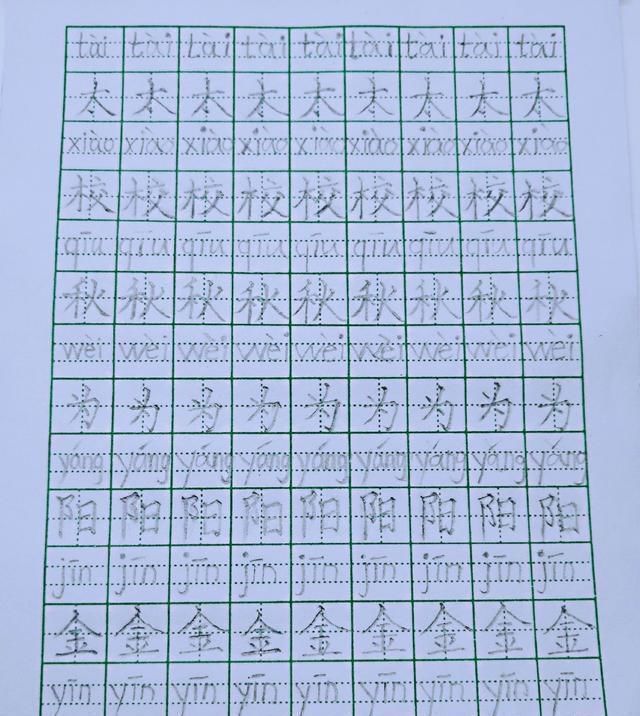 tài tài tài tài tài tài tài tài tài
太 太 太 太 太 太 太 太 太
xiào xiào xiào xiào xiào xiào xiào xiào xiào
校 校 校 校 校 校 校 校 校
qīu qīu qīu qīu qīu qīu qīu qīu qīu
秋 秋 秋 秋 秋 秋 秋 秋 秋
wèi wèi wèi wèi wèi wèi wèi wèi wèi
为 为 为 为 为 为 为 为 为
yáng yáng yáng yáng yáng yáng yáng yáng yáng
阳 阳 阳 阳 阳 阳 阳 阳 阳
jīn jīn jīn jīn jīn jīn jīn jīn jīn
金 金 金 金 金 金 金 金 金
yīn yīn yīn yīn yīn yīn yīn yīn yīn